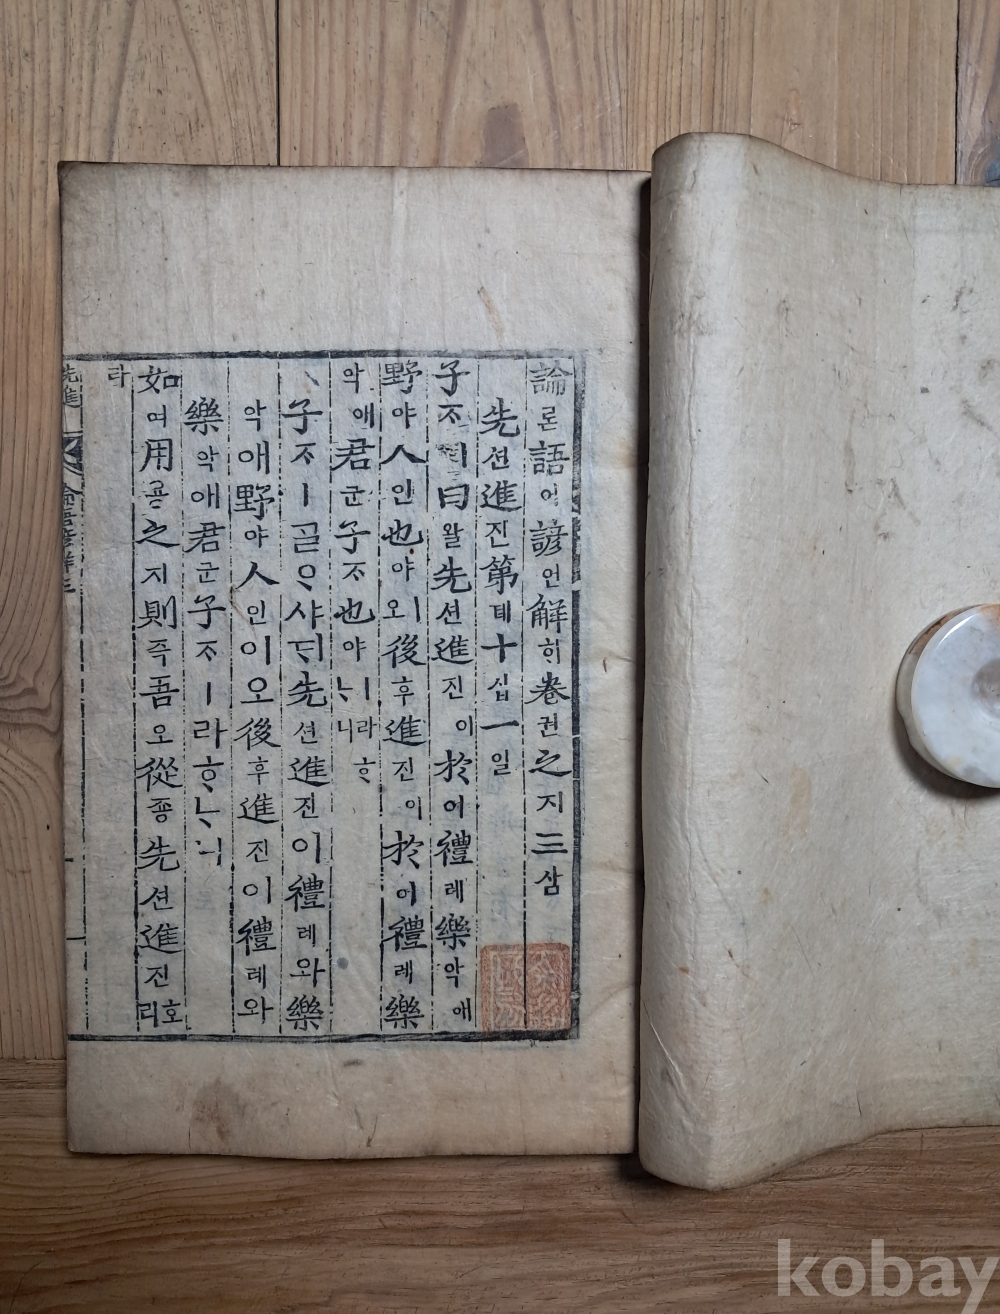 論론語어諺언解ᄒᆡ卷권之지三삼
先션進진第뎨十십一일
子ᄌᆞㅣ曰왈先션進진이於어禮례樂악애
野야人인也야ㅣ오後후進진이於어禮례樂
악애君군子ᄌᆞ也야ㅣ라ᄒᆞᄂᆞ니
子ᄌᆞㅣᄀᆞᆯᄋᆞ샤ᄃᆡ先션進진이禮례와樂
악애野야人인이오後후進진이禮례와
樂악애君군子ᄌᆞㅣ라ᄒᆞᄂᆞ니
如여用용之지則즉吾오從죵先션進진호리
라
先進 論語諺解三
kobay